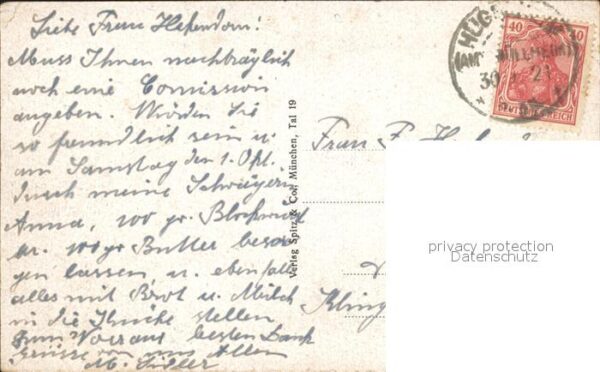 Liebe Frau Hefendorn!
Muss Ihnen nachträglich
noch eine Comission
angeben. Würden Sie
so freundlich sein u.
am Samstag den 1. Okt.
durch meine Schwägerin
Anna, 100 gr.
u. 100 gr Butter besor
gen lassen, u. ebenfalls
alles mit Brot u. Milch
in die Küche stellen
zum Voraus besten Dank
Grüsse von uns Allen
M.
Verlag Spitz & Co., München, Tal 19
40 40
DEUTSCHES REICH
HÜG
(AMT MÜLLHEIM)
30 21
Frau F.
Kling
privacy protection
Datenschutz